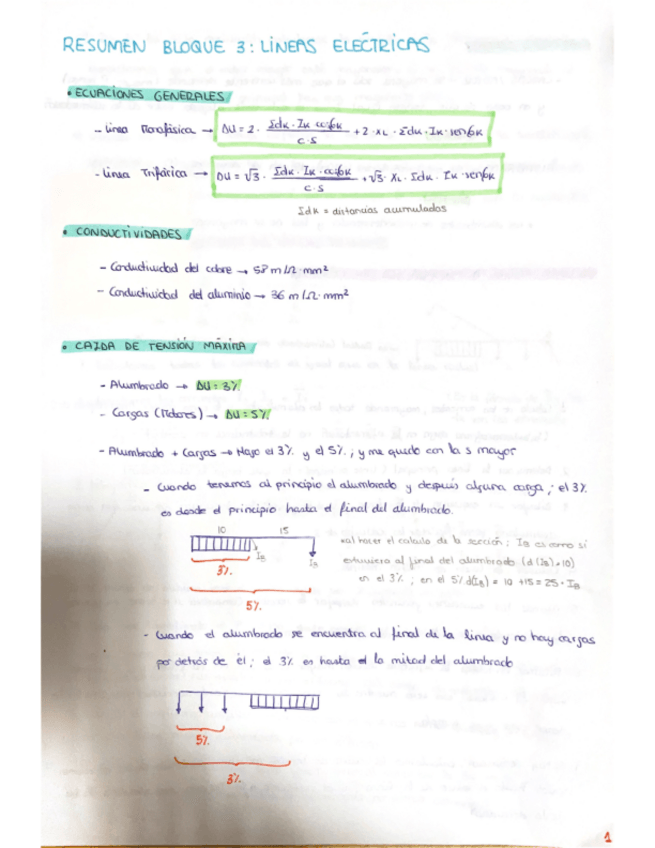 RESUMEN BLOQUE 3: LÍNEAS ELÉCTRICAS
• ECUACIONES GENERALES
- Línea Monofásica → ΔU = 2 · (Σdk · Ik · cosφk) / (C · S) + 2 · XL · Σdk · Ik · senφk
- Línea Trifásica → ΔU = √3 · (Σdk · Ik · cosφk) / (C · S) + √3 · XL · Σdk · Ik · senφk
Σdk = distancias acumuladas
• CONDUCTIVIDADES
- Conductividad del cobre → 58 m/Ω·mm²
- Conductividad del aluminio → 36 m/Ω·mm²
• CAIDA DE TENSIÓN MÁXIMA
- Alumbrado → ΔU = 3%
- Cargas (Motores) → ΔU = 5%
- Alumbrado + Cargas → Hago el 3% y el 5%, y me quedo con la s mayor
- Cuando tenemos al principio el alumbrado y después alguna carga, el 3%
es desde el principio hasta el final del alumbrado.
10 15
IB IB
3%
5%
*al hacer el calculo de la sección; IB es como si
estuviera al final del alumbrado (d(IB)=10)
en el 3%; en el 5% d(IB) = 10 + 15 = 25 · IB
- Cuando el alumbrado se encuentra al final de la línea y no hay cargas
por detrás de él; el 3% es hasta la mitad del alumbrado
5%
3%
1